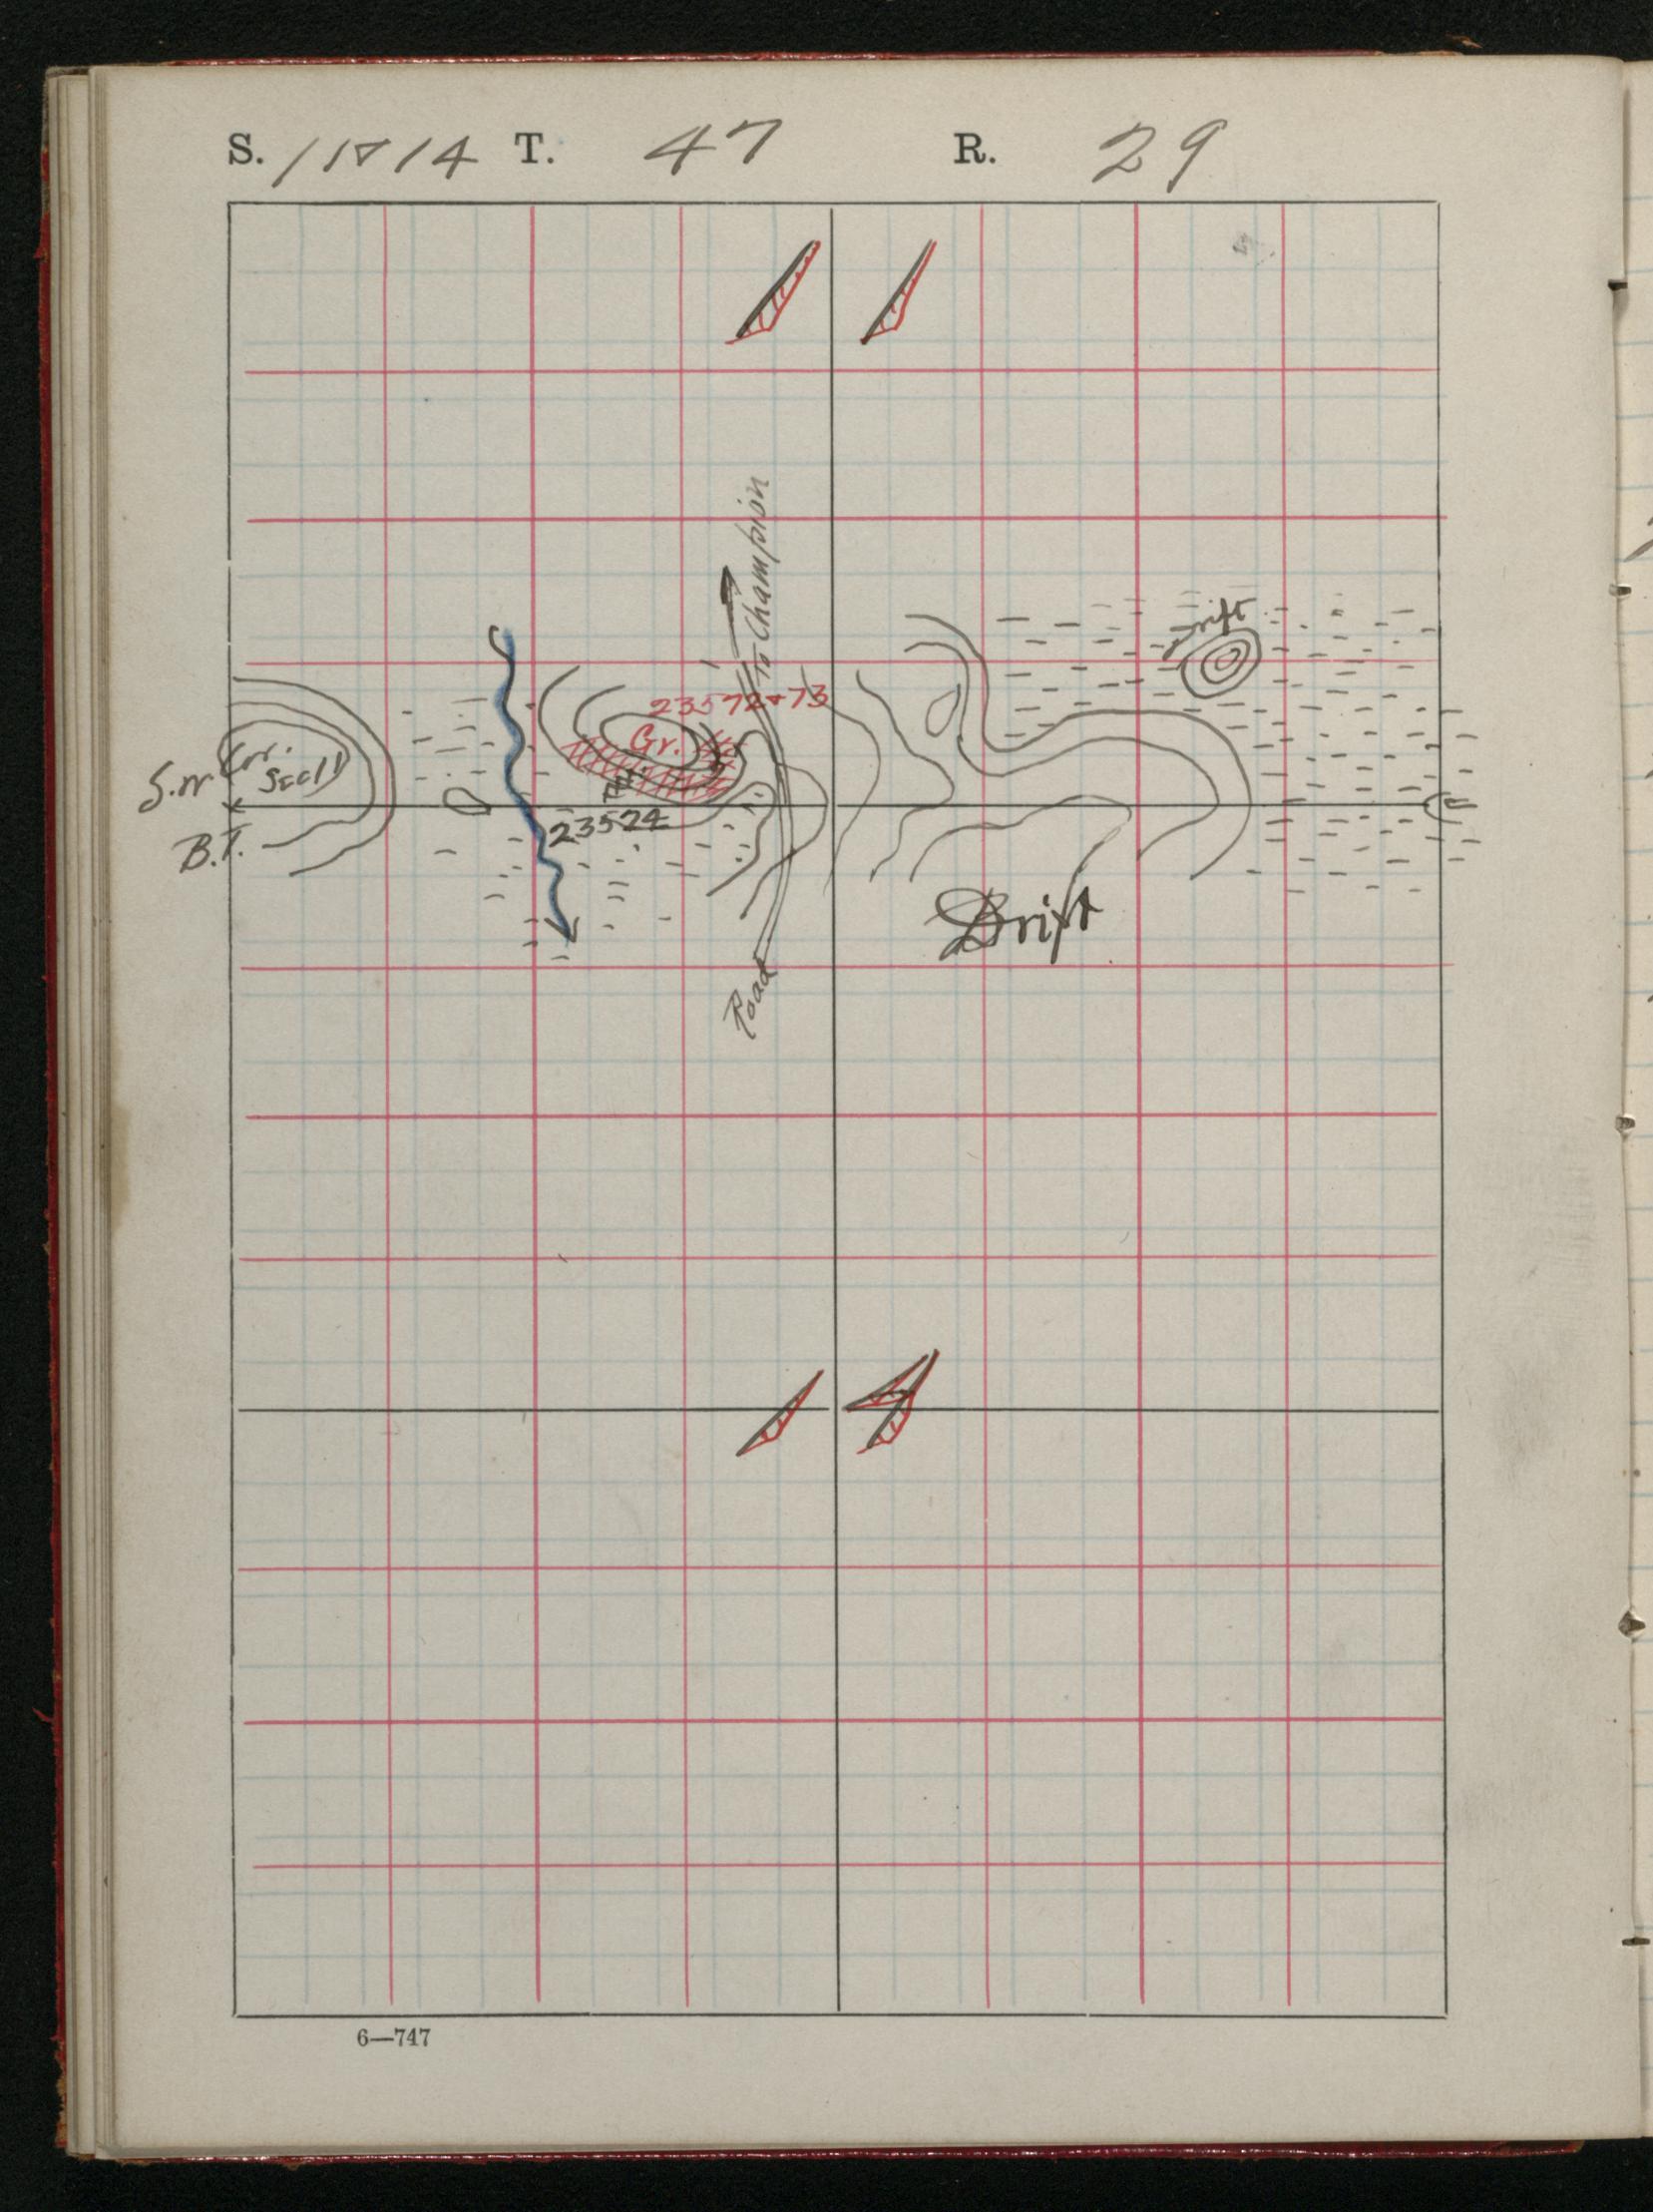 S. 11 & 14 T. 47 R. 29
11
To Champion
Drift
23572 & 73
Gr.
S.W. Cor.
Sec 11
B.T.
23574
Drift
Road
14
6—747